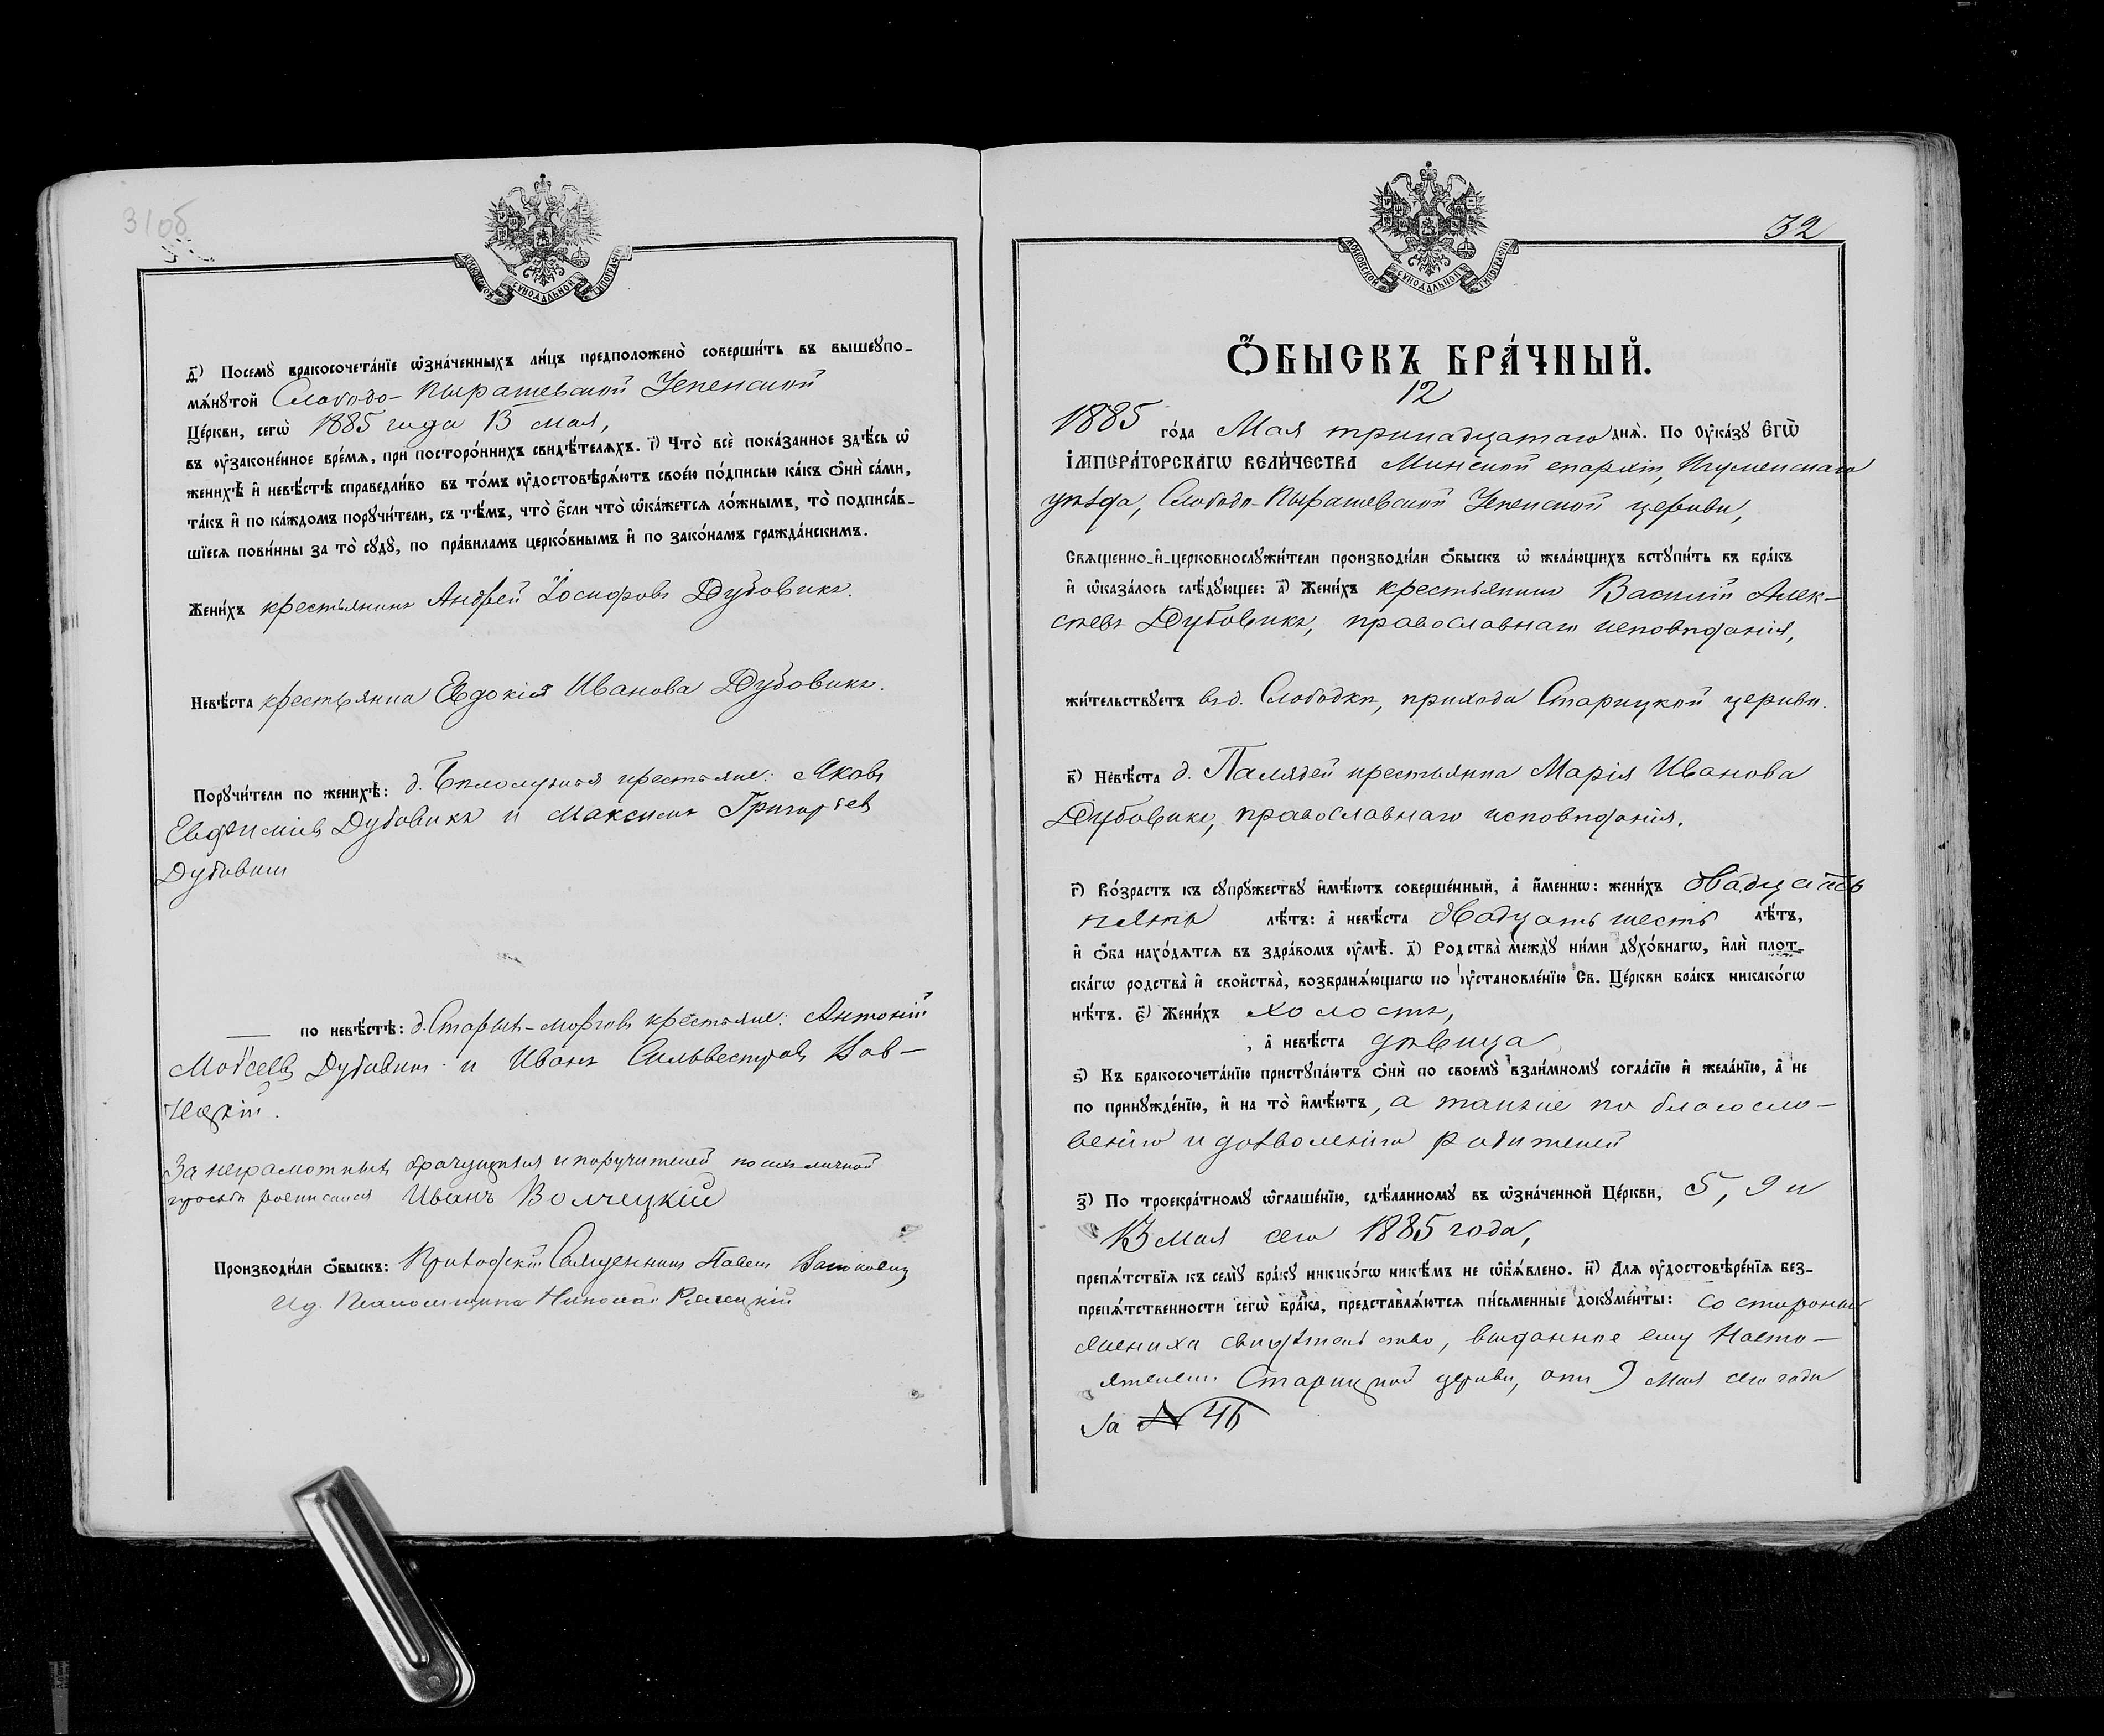 31об
МОСКОВСКОЙ СѴНОДАЛЬНОЙ ТИПОГРАФІИ
д҃) Посемꙋ̀ бракосочета́нїе ѡ҆зна́ченныхъ ли́цъ предположено̀ соверши́ть въ вышеꙋпо-
мѧ́нꙋтой Слободо-Пырашевской Успенской
Це́ркви, сегѡ̀ 1885 года 13 мая,
въ ᲂу҆законе́нное вре́мѧ, при посторо́ннихъ свидѣ́телѧхъ. і҃) Что̀ всѐ пока́занное здѣ́сь ѡ҆
женихѣ̀ и҆ невѣ́стѣ справедли́во въ то́мъ ᲂу҆достовѣрѧ́ютъ свое́ю по́дписью ка́къ ѻ҆нѝ са́ми,
та́къ и҆ по ка́ждомъ порꙋчи́тели, съ тѣ́мъ, что̀ є҆́сли что̀ ѡ҆ка́жетсѧ ло́жнымъ, то̀ подписа́в-
шїесѧ пови́нны за то̀ сꙋдꙋ̀, по пра́виламъ церко́внымъ и҆ по зако́намъ гражда́нскимъ.
Жени́хъ крестьянинъ Андрей Іосифовъ Дубовикъ.
Невѣ́ста крестьянка Евдокія Иванова Дубовикъ.
Порꙋчи́тели по женихѣ̀: д. крестьяне: Яковъ
Евфиміевъ Дубовикъ и Максимъ Григорьевъ
Дубовикъ
по невѣ́стѣ: д. Старыхъ-Морговъ крестьяне: Антоній
Моѵсеевъ Дубовикъ и Иванъ Сильвестровъ
За неграмотныхъ брачущихся и поручителей по ихъ личной
просьбѣ росписался Иванъ Волчецкій
Производи́ли ѻ҆́быскъ: Приходскій Священникъ Павелъ
И.д. Псаломщика Николай
32
МОСКОВСКОЙ СѴНОДАЛЬНОЙ ТИПОГРАФІИ
Ѻ҆́БЫСКЪ БРА́ЧНЫЙ.
12
1885 го́да Мая тринадцатаго днѧ̀. По ᲂу҆ка́зꙋ Є҆гѡ̀
І҆МПЕРА́ТОРСКАГѠ ВЕЛИ́ЧЕСТВА Минской епархіи, Игуменскаго
уѣзда, Слободо-Пырашевской Успенской церкви,
Свѧщенно-и҆-церковнослꙋжи́тели производи́ли ѻ҆́быскъ ѡ҆ жела́ющихъ встꙋпи́ть въ бра́къ
и҆ ѡ҆каза́лось слѣ́дꙋющее: а҃) Жени́хъ крестьянинъ Василій Алек-
сѣевъ Дубовикъ, православнаго исповѣданія,
жи́тельствꙋетъ въ д. Слободкѣ, прихода Старицкой церкви.
в҃) Невѣ́ста д. Палядей крестьянка Марія Иванова
Дубовикъ, православнаго исповѣданія.
г҃) Во́зрастъ къ сꙋпрꙋ́жествꙋ и҆мѣ́ютъ соверше́нный, а҆ и҆́менно: жени́хъ двадцать
пять лѣ́тъ: а҆ невѣ́ста двадцать шесть лѣ́тъ,
и҆ ѻ҆́ба нахо́дѧтсѧ въ здра́вомъ ᲂу҆мѣ̀. д҃) Родства̀ междꙋ̀ ни́ми дꙋхо́внагѡ, и҆лѝ плот-
ска́гѡ родства̀ и҆ свойства̀, возбранѧ́ющагѡ по ᲂу҆становле́нїю Св. Це́ркви бра́къ никако́гѡ
нѣ́тъ. є҃) Жени́хъ холостъ,
, а҆ невѣ́ста дѣвица
ѕ҃) Къ бракосочета́нїю пристꙋпа́ютъ ѻ҆нѝ по своемꙋ̀ взаи́мномꙋ согла́сїю и҆ жела́нїю, а҆ не
по принꙋжде́нїю, и҆ на то̀ и҆мѣ́ютъ, а также по благосло-
венію и дозволенію родителей
з҃) По троекра́тномꙋ ѡ҆глаше́нїю, сдѣ́ланномꙋ въ ѡ҆зна́ченной Це́ркви, 5, 9 и
13 мая сего 1885 года,
препѧ́тствїѧ къ семꙋ̀ бра́кꙋ никако́гѡ никѣ́мъ не ѡ҆б̾ѧ́влено. и҃) Длѧ ᲂу҆достовѣре́нїѧ без-
препѧ́тственности сегѡ̀ бра́ка, представлѧ́ютсѧ пи́сьменные докꙋме́нты: со стороны
жениха свидѣтельство, выданное ему Насто-
ятелемъ Старицкой церкви, отъ 9 мая сего года
за № 46